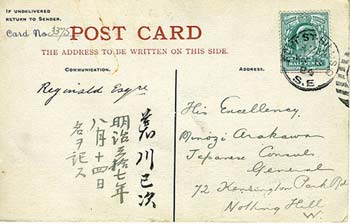 IF UNDELIVERED
RETURN TO SENDER.
Card No. 3375
POST CARD
THE ADDRESS TO BE WRITTEN ON THIS SIDE.
COMMUNICATION.
ADDRESS.
Reginald Esqre
荒川巳次
明治三拾七年
八月十四日
名ヲ記ス
His Excellency,
Minoji Arakawa
Japanese Consul
General
72 Kensington Park Rd
Notting Hill
W.
HALFPENNY
S.E.